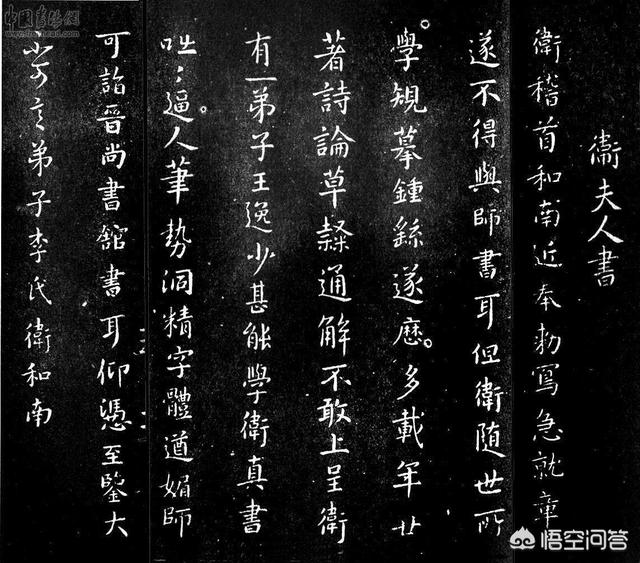 衛夫人書
衛稽首和南近奉勑寫急就章
遂不得與師書耳但衛隨世所
學規摹鍾繇遂歷多載年廿
著詩論草隸通解不敢上呈衛
有一弟子王逸少甚能學衛真書
咄々逼人筆勢洞精字體遒媚師
可詣晉尚書館書耳仰憑至鑒大
弟子李氏衛和南
中国書法網
悟空问答